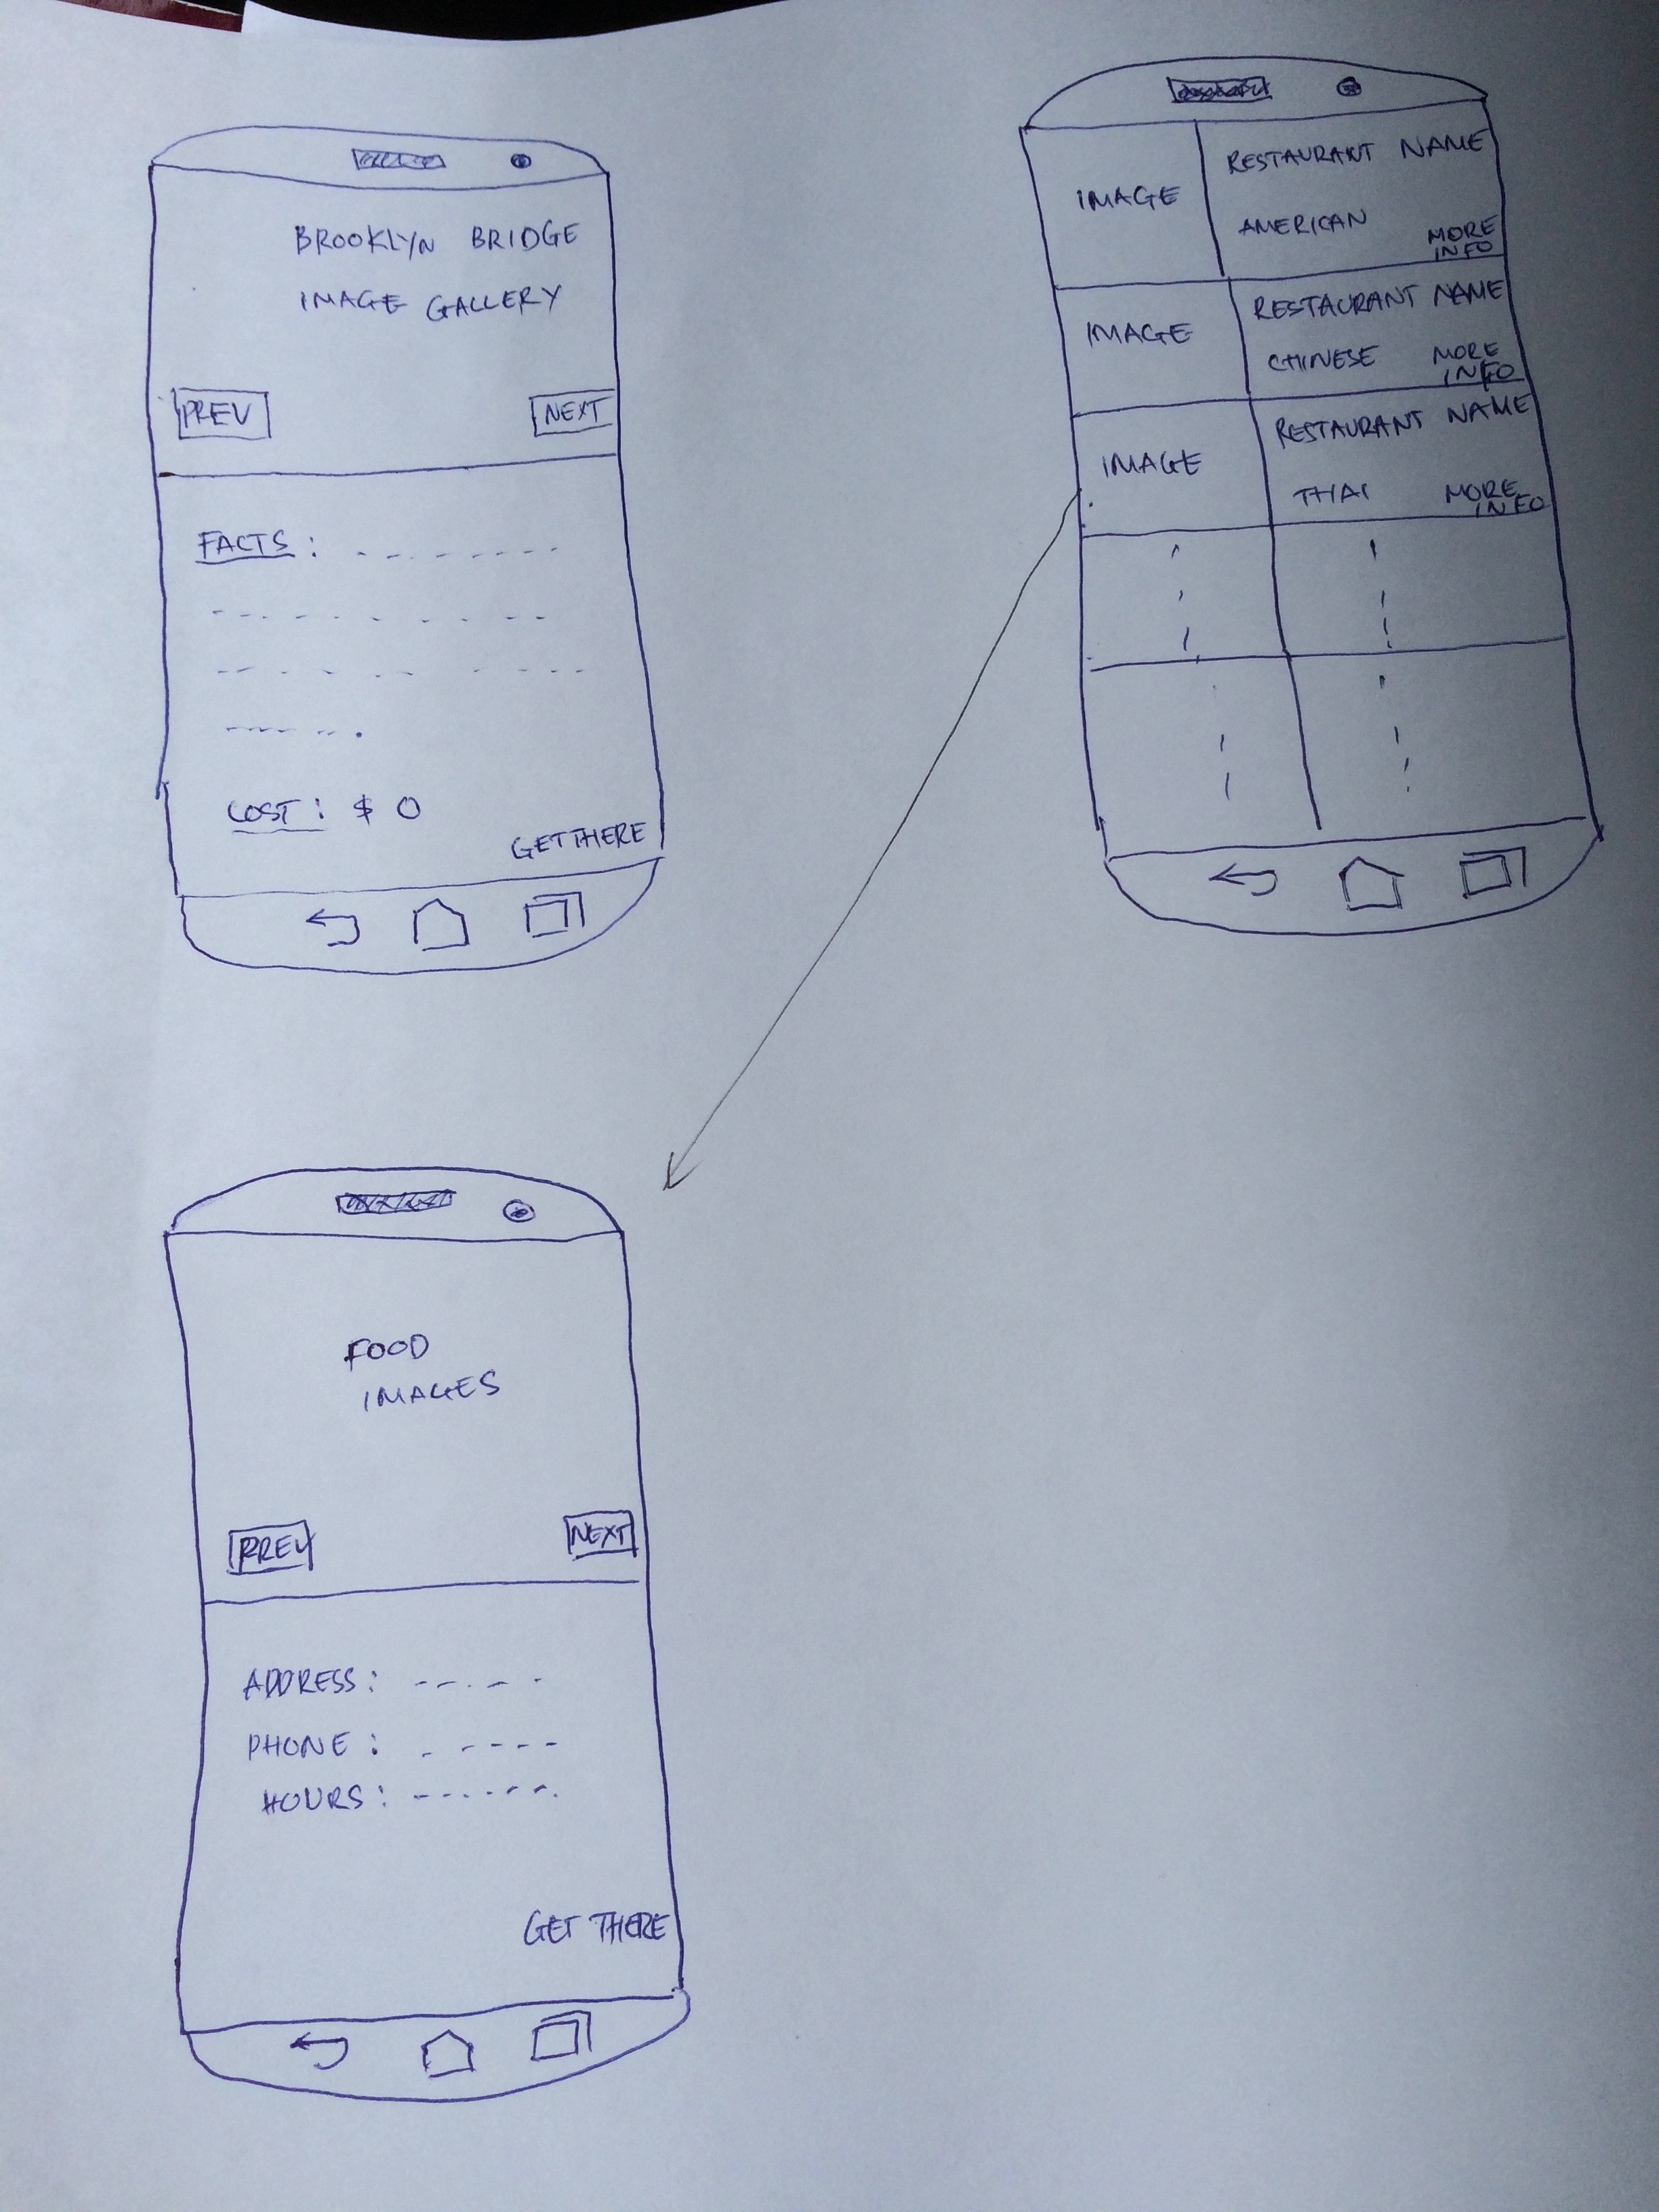 BROOKLYN BRIDGE
IMAGE GALLERY
PREV
NEXT
FACTS :
COST : $ 0
GET THERE
IMAGE
RESTAURANT NAME
AMERICAN
MORE
INFO
IMAGE
RESTAURANT NAME
CHINESE
MORE
INFO
IMAGE
RESTAURANT NAME
THAI
MORE
INFO
FOOD
IMAGES
PREV
NEXT
ADDRESS :
PHONE :
HOURS :
GET THERE